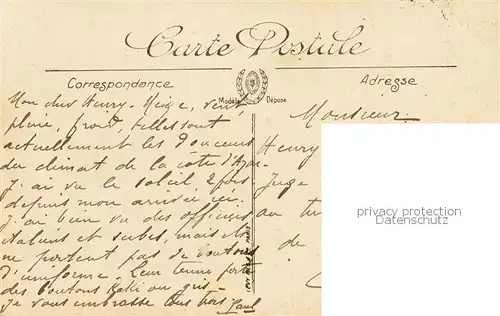 Carte Postale
Correspondance
Adresse
Modèle Déposé
Mon cher Henry - Neige, vent
pluie, froid, telles sont
actuellement les douceurs
du climat de la côte d'Azur.
J'ai vu le soleil 2 fois
depuis mon arrivée ici.
J'ai bien vu des officiers
italiens et serbes, mais ils
ne portent pas de boutons
d'uniforme - Leur tenue porte
des boutons kaki ou gris -
Je vous embrasse tous trois Paul
Monsieur
Henry
Juge
au
de
privacy protection
Datenschutz